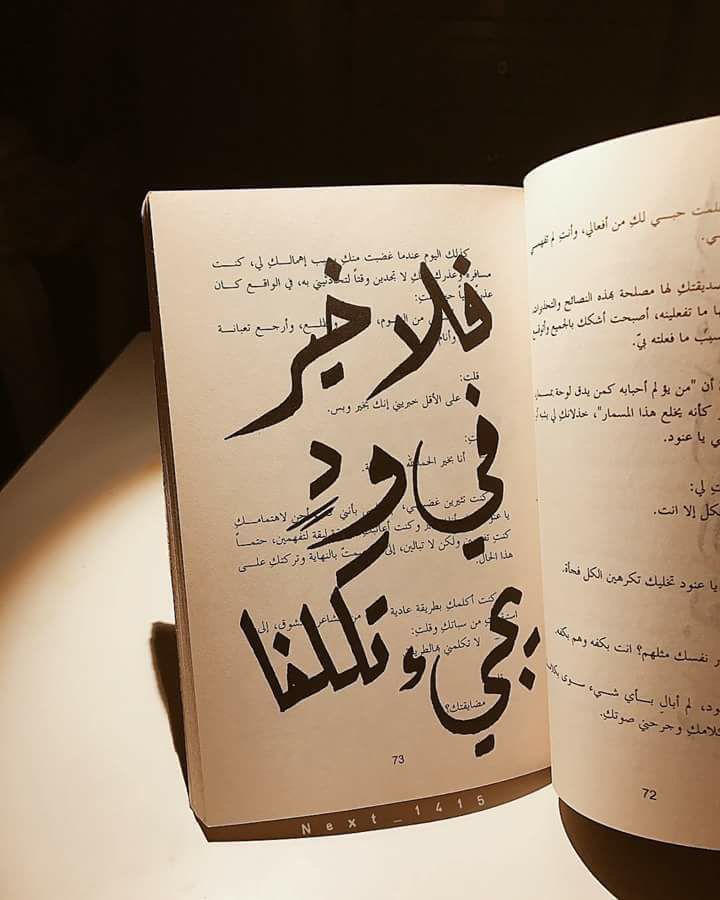 فلا خير
في ودٍ
يجيء تكلفا
كذلك اليوم عندما غضبت منك بسبب إهمالكِ لي، كنت
لا تجدين وقتاً لتحادثيني به، في الواقع كان
من النوم، وأرجع تعبانة
وأنام
قلت:
على الأقل خبريني إنك بخير وبس.
أنا بخير الحمدلله
كنت تثيرين غضبي، بأنني لاهتمامكِ
ولكن لا تبالين، بالنهاية وتركتكِ على
هذا الحال.
كنت أكلمكِ بطريقة عادية من
من سباتكِ وقلتِ:
لا تكلمني بهالطريقة
مضايقتك؟
73
حبي لكِ من أفعالي، وأنتِ لم تفهمي
صديقتكِ لها مصلحة بهذه النصائح والتحذيرات
ما تفعلينه، أصبحت أشكك بالجميع
ما فعلته بيّ.
أن "من يؤلم أحبابه كمن يدق لوحة
كأنه يخلع هذا المسمار"، خذلانكِ لي
يا عنود.
لي:
إلا انت.
يا عنود تخليك تكرهين الكل فجأة.
نفسك مثلهم؟ انت بكفه وهم بكفه.
لم أبالِ بأي شيء سوى
وجرحني صوتكِ.
72
Next_1415